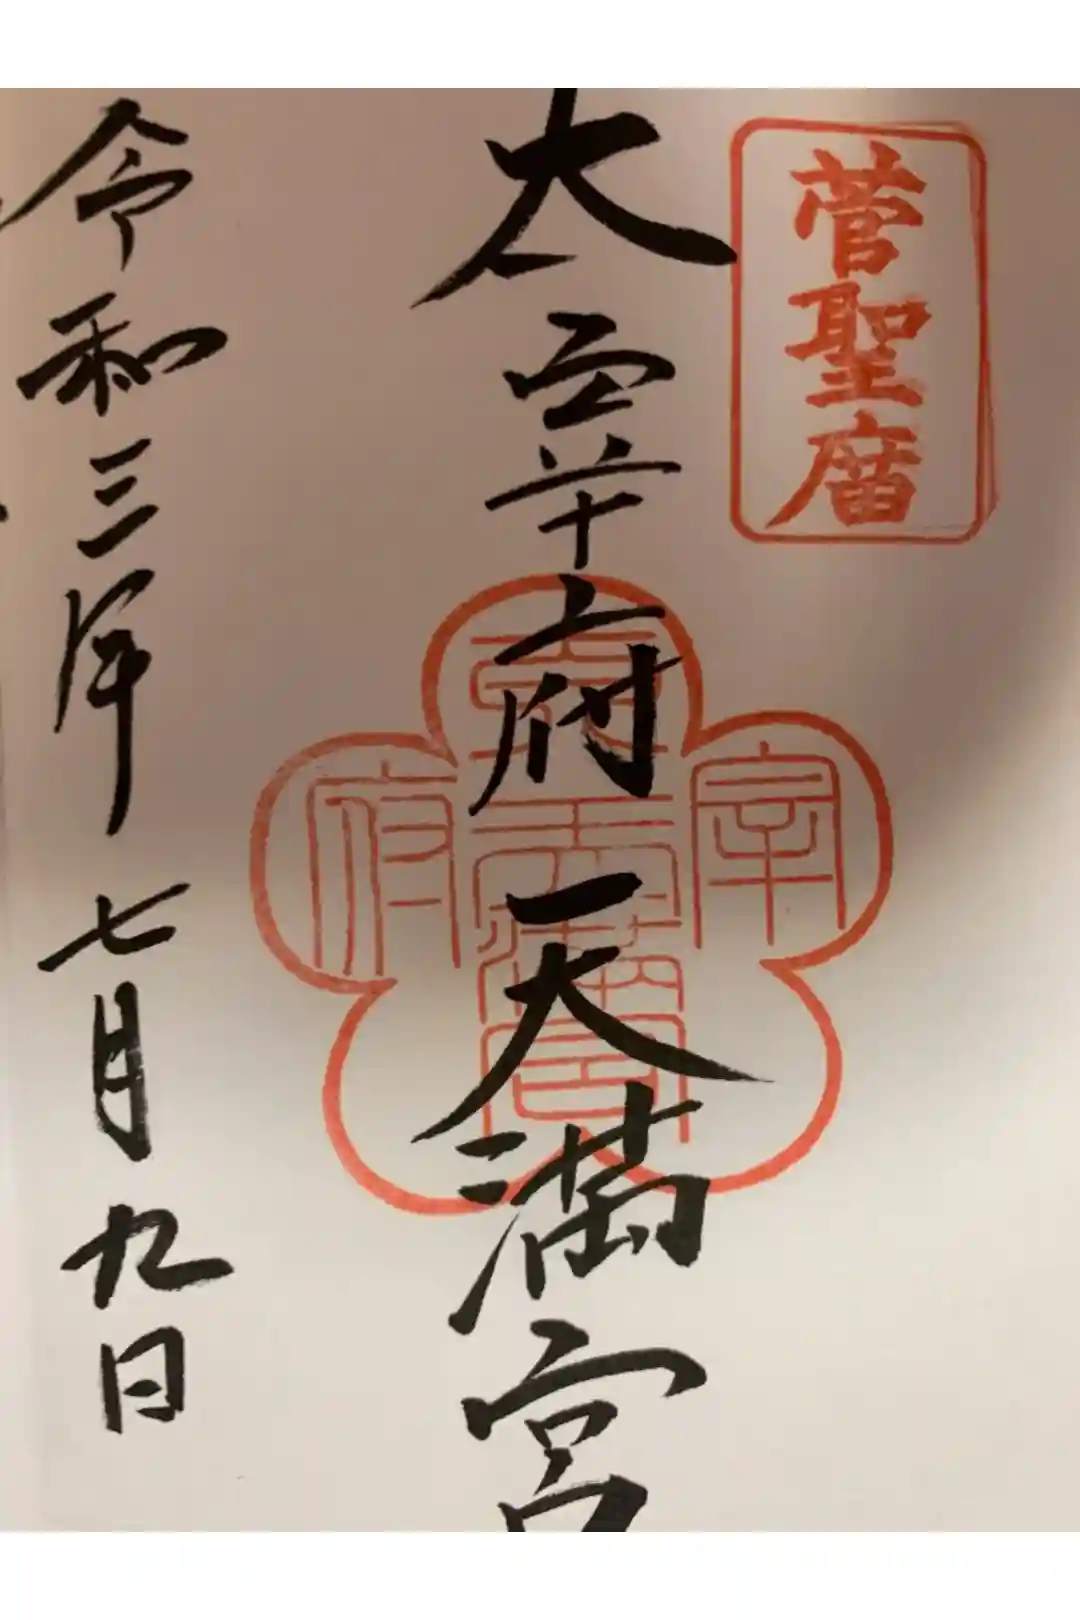 菅聖庿
太宰府天満宮
太
宰
府
天満宮
令和三年七月九日